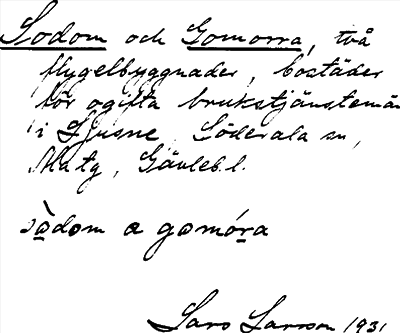 Sodom och Gomorra, två
flygelbyggnader, bostäder
för ogifta brukstjänstemän
i Ljusne, Söderala sn,
Gävleb.l.
sòdom a gomóra
Lars Larsson 1931